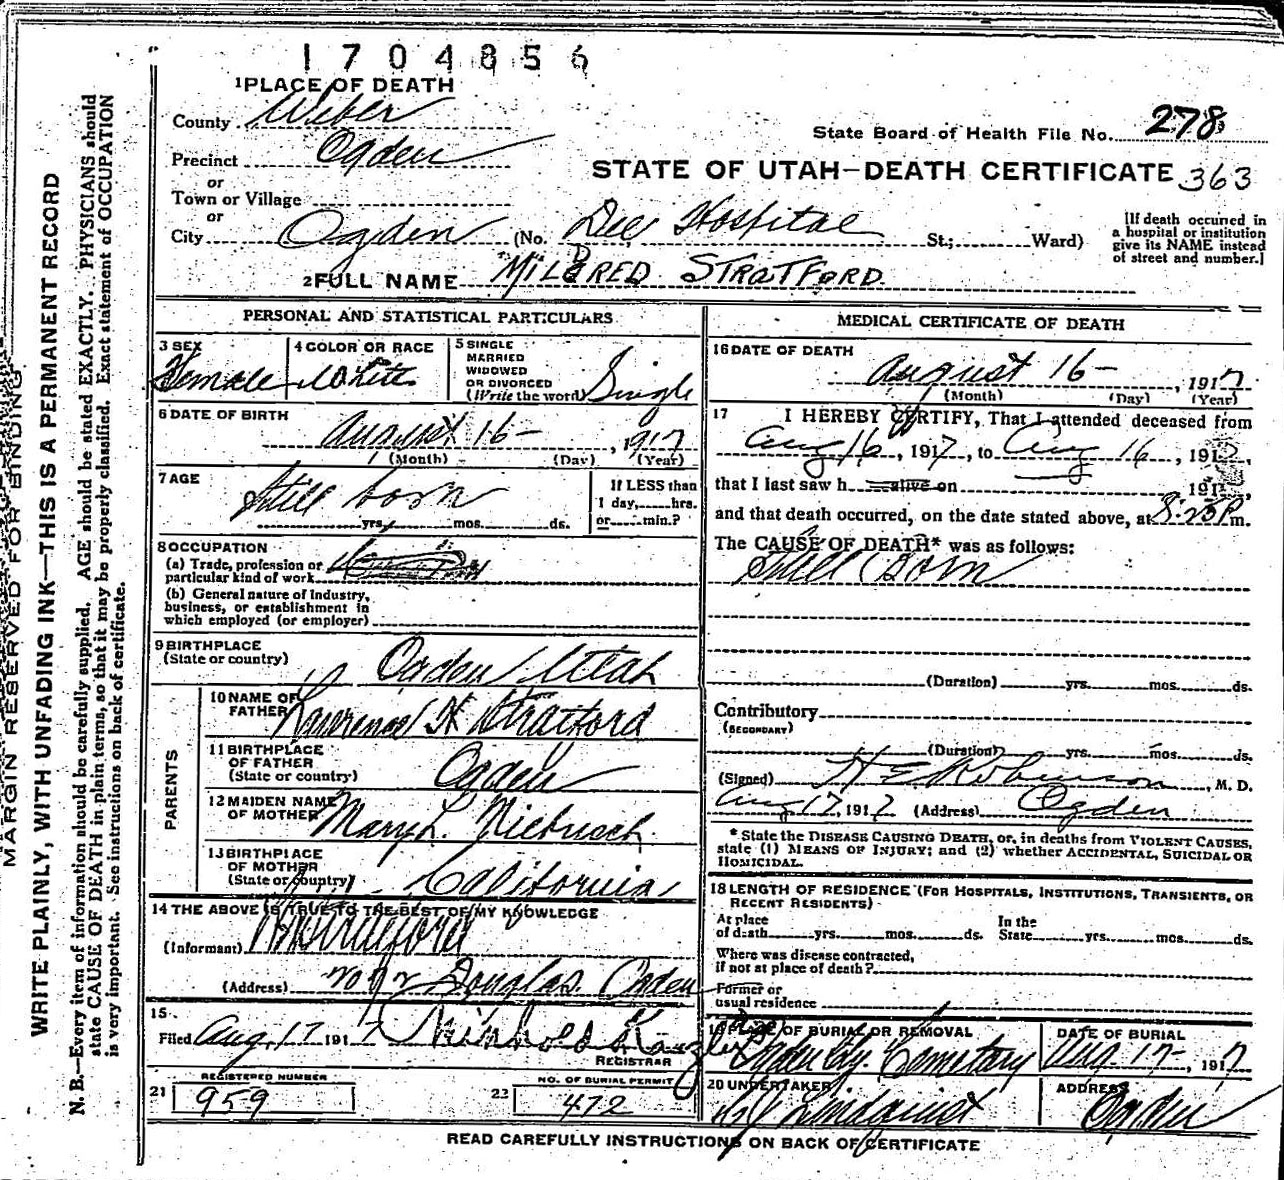 1704856
1 PLACE OF DEATH
County Weber
State Board of Health File No. 278
Precinct Ogden
STATE OF UTAH—DEATH CERTIFICATE 363
or
Town or Village
or
City Ogden (No. Dee Hospital St.; Ward)
[If death occurred in
a hospital or institution
give its NAME instead
of street and number.]
2 FULL NAME "MILDRED" STRATFORD
PERSONAL AND STATISTICAL PARTICULARS
3 SEX
Female
4 COLOR OR RACE
White
5 SINGLE
MARRIED
WIDOWED
OR DIVORCED
(Write the word) Single
6 DATE OF BIRTH
August 16 - , 1917
(Month) (Day) (Year)
7 AGE
Still born
yrs. mos. ds.
If LESS than
1 day, hrs.
or min.?
8 OCCUPATION
(a) Trade, profession or
particular kind of work
(b) General nature of Industry,
business, or establishment in
which employed (or employer)
9 BIRTHPLACE
(State or country) Ogden Utah
PARENTS
10 NAME OF
FATHER Lawrence H Stratford
11 BIRTHPLACE
OF FATHER
(State or country) Ogden
12 MAIDEN NAME
OF MOTHER Mary L. Niebusch
13 BIRTHPLACE
OF MOTHER
(State or country) California
14 THE ABOVE IS TRUE TO THE BEST OF MY KNOWLEDGE
(Informant) Stratford
(Address) Douglas. Ogden
15
Filed Aug. 17 1917
REGISTRAR
REGISTERED NUMBER
21 959
NO. OF BURIAL PERMIT
22 472
MEDICAL CERTIFICATE OF DEATH
16 DATE OF DEATH
August 16 - , 1917
(Month) (Day) (Year)
17 I HEREBY CERTIFY, That I attended deceased from
Aug 16, 1917, to Aug 16, 1917,
that I last saw h alive on 191 ,
and that death occurred, on the date stated above, at 8:25 P m.
The CAUSE OF DEATH* was as follows:
Still Born
(Duration) yrs. mos. ds.
Contributory
(SECONDARY)
(Duration) yrs. mos. ds.
(Signed) H E Robinson, M. D.
Aug 17, 1917 (Address) Ogden
* State the DISEASE CAUSING DEATH, or, in deaths from VIOLENT CAUSES,
state (1) MEANS OF INJURY; and (2) whether ACCIDENTAL, SUICIDAL OR
HOMICIDAL.
18 LENGTH OF RESIDENCE (FOR HOSPITALS, INSTITUTIONS, TRANSIENTS, OR
RECENT RESIDENTS)
At place
of death yrs. mos. ds.
In the
State yrs. mos. ds.
Where was disease contracted,
if not at place of death?
Former or
usual residence
19 PLACE OF BURIAL OR REMOVAL
Ogden City Cemetary
DATE OF BURIAL
Aug. 17 - , 1917
20 UNDERTAKER
Lindquist
ADDRESS
Ogden
READ CAREFULLY INSTRUCTIONS ON BACK OF CERTIFICATE
MARGIN RESERVED FOR BINDING
WRITE PLAINLY, WITH UNFADING INK—THIS IS A PERMANENT RECORD
N. B.—Every item of information should be carefully supplied. AGE should be stated EXACTLY. PHYSICIANS should
state CAUSE OF DEATH in plain terms, so that it may be properly classified. Exact statement of OCCUPATION
is very important. See instructions on back of certificate.